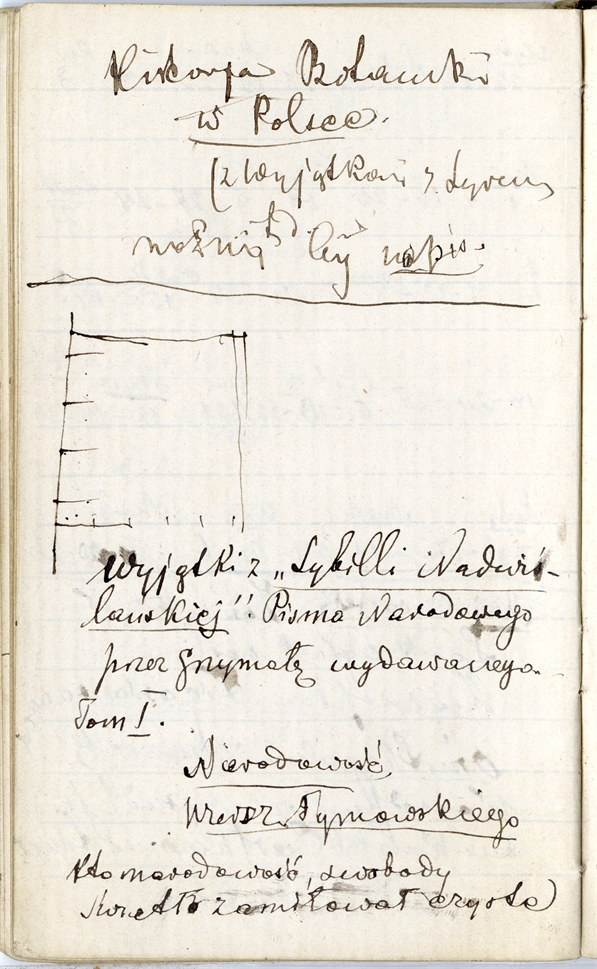 Historja Botaniki
w Polsce.
(z Wyjątkami z Syreni
możnaby napis.
Wyjątki z „Sybilli Nadwiś-
lańskiej". Pisma Narodowego
przez Grzymałę wydawanego.
Tom I.
Narodowość,
przez Tymowskiego
Kto narodowość, swobody
światło zamiłował czyste)